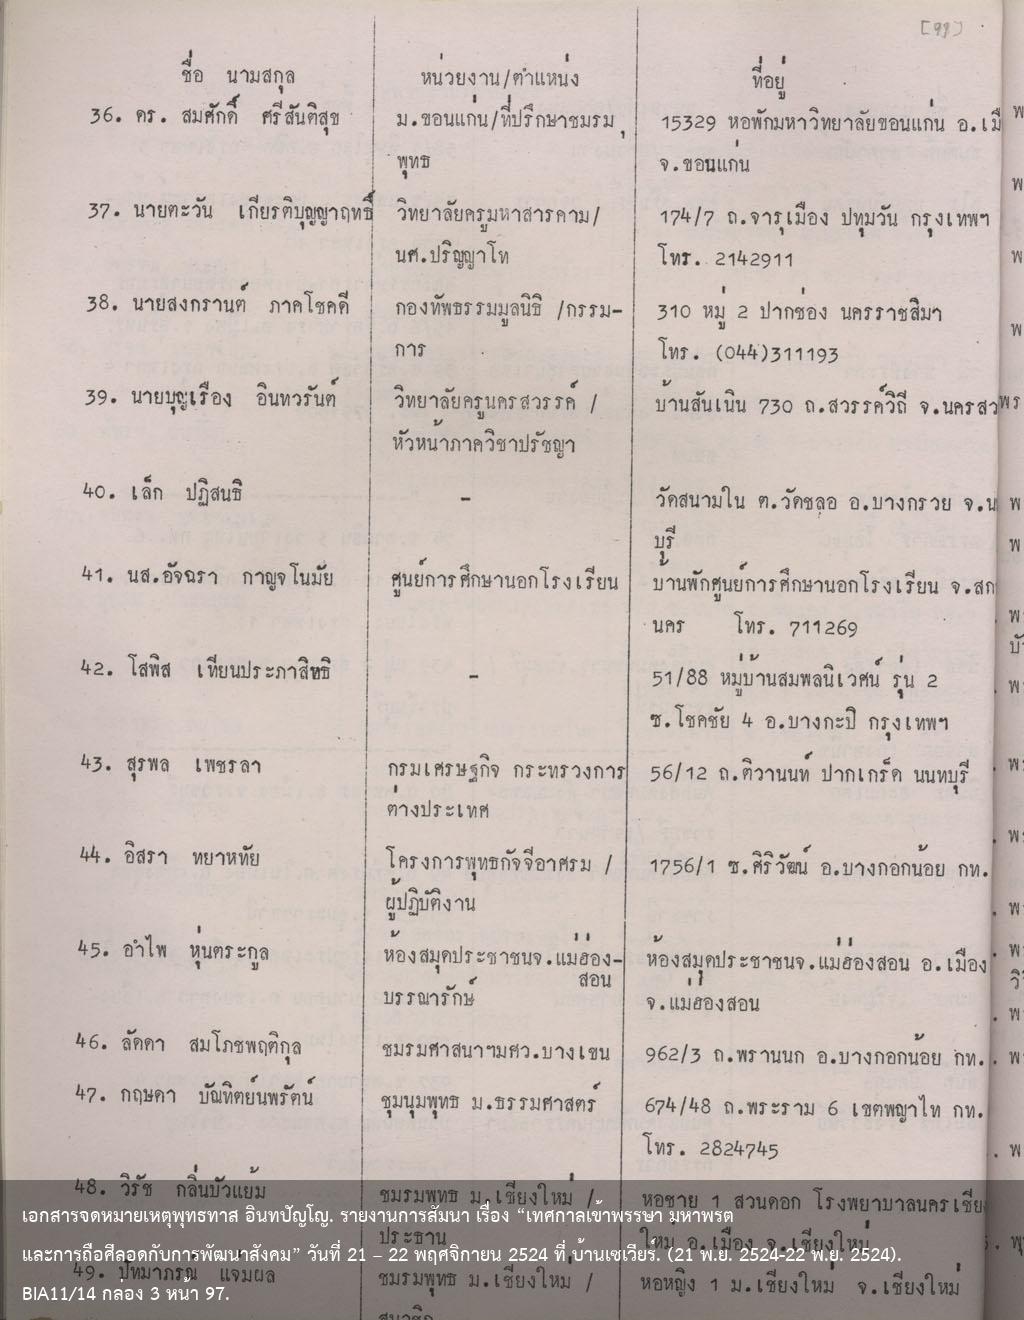 [99]
ชื่อ นามสกุล หน่วยงาน/ตำแหน่ง ที่อยู่
36. ดร. สมศักดิ์ ศรีสันติสุข ม.ขอนแก่น/ที่ปรึกษาชมรม 15329 หอพักมหาวิทยาลัยขอนแก่น อ.เมื
พุทธ จ.ขอนแก่น
37. นายตะวัน เกียรติบุญญาฤทธิ์ วิทยาลัยครูมหาสารคาม/ 174/7 ถ.จารุเมือง ปทุมวัน กรุงเทพฯ
นศ.ปริญญาโท โทร. 2142911
38. นายสงกรานต์ ภาคโชคดี กองทัพธรรมมูลนิธิ /กรรม- 310 หมู่ 2 ปากช่อง นครราชสีมา
การ โทร. (044)311193
39. นายบุญเรือง อินทวรันต์ วิทยาลัยครูนครสวรรค์ / บ้านสันเนิน 730 ถ.สวรรค์วิถี จ.นครสว
หัวหน้าภาควิชาปรัชญา
40. เล็ก ปฏิสนธิ - วัดสนามใน ต.วัดชลอ อ.บางกรวย จ.น
บุรี
41. นส.อัจฉรา กาญจโนมัย ศูนย์การศึกษานอกโรงเรียน บ้านพักศูนย์การศึกษานอกโรงเรียน จ.สก
นคร โทร. 711269
42. โสพิส เทียนประภาสิทธิ - 51/88 หมู่บ้านสมพลนิเวศน์ รุ่น 2
ซ.โชคชัย 4 อ.บางกะปิ กรุงเทพฯ
43. สุรพล เพชรลา กรมเศรษฐกิจ กระทรวงการ 56/12 ถ.ติวานนท์ ปากเกร็ด นนทบุรี
ต่างประเทศ
44. อิสรา ทยาหทัย โครงการพุทธกัจจีอาศรม / 1756/1 ซ.ศิริวัฒน์ อ.บางกอกน้อย กท.
ผู้ปฏิบัติงาน
45. อำไพ หุ่นตระกูล ห้องสมุดประชาชนจ.แม่ฮ่อง- ห้องสมุดประชาชนจ.แม่ฮ่องสอน อ.เมือง
สอน
บรรณารักษ์ จ.แม่ฮ่องสอน
46. ลัดดา สมโภชพฤติกุล ชมรมศาสนาฯมศว.บางเขน 962/3 ถ.พรานนก อ.บางกอกน้อย กท.
47. กฤษดา บัณฑิตย์นพรัตน์ ชุมนุมพุทธ ม.ธรรมศาสตร์ 674/48 ถ.พระราม 6 เขตพญาไท กท.
โทร. 2824745
48. วิรัช กลิ่นบัวแย้ม ชมรมพุทธ ม.เชียงใหม่ / หอชาย 1 สวนดอก โรงพยาบาลนครเชีย
ประธาน ใหม่ อ.เมือง จ.เชียงใหม่
49. ปัทมาภรณ์ แจ่มผล ชมรมพุทธ ม.เชียงใหม่ / หอหญิง 1 ม.เชียงใหม่ จ.เชียงใหม่
สมาชิก
เอกสารจดหมายเหตุพุทธทาส อินทปัญโญ. รายงานการสัมนา เรื่อง “เทศกาลเข้าพรรษา มหาพรต
และการถือศีลอดกับการพัฒนาสังคม” วันที่ 21 – 22 พฤศจิกายน 2524 ที่ บ้านเซเวียร์. (21 พ.ย. 2524-22 พ.ย. 2524).
BIA11/14 กล่อง 3 หน้า 97.